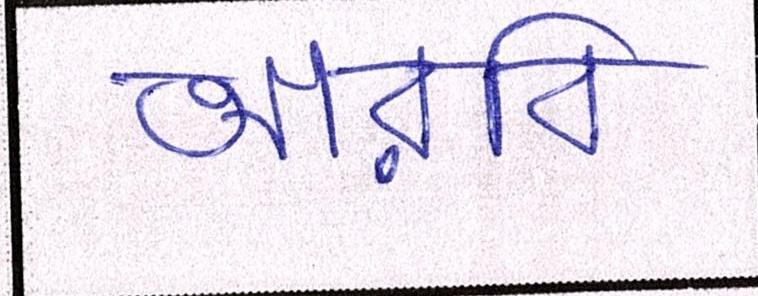 আরবি